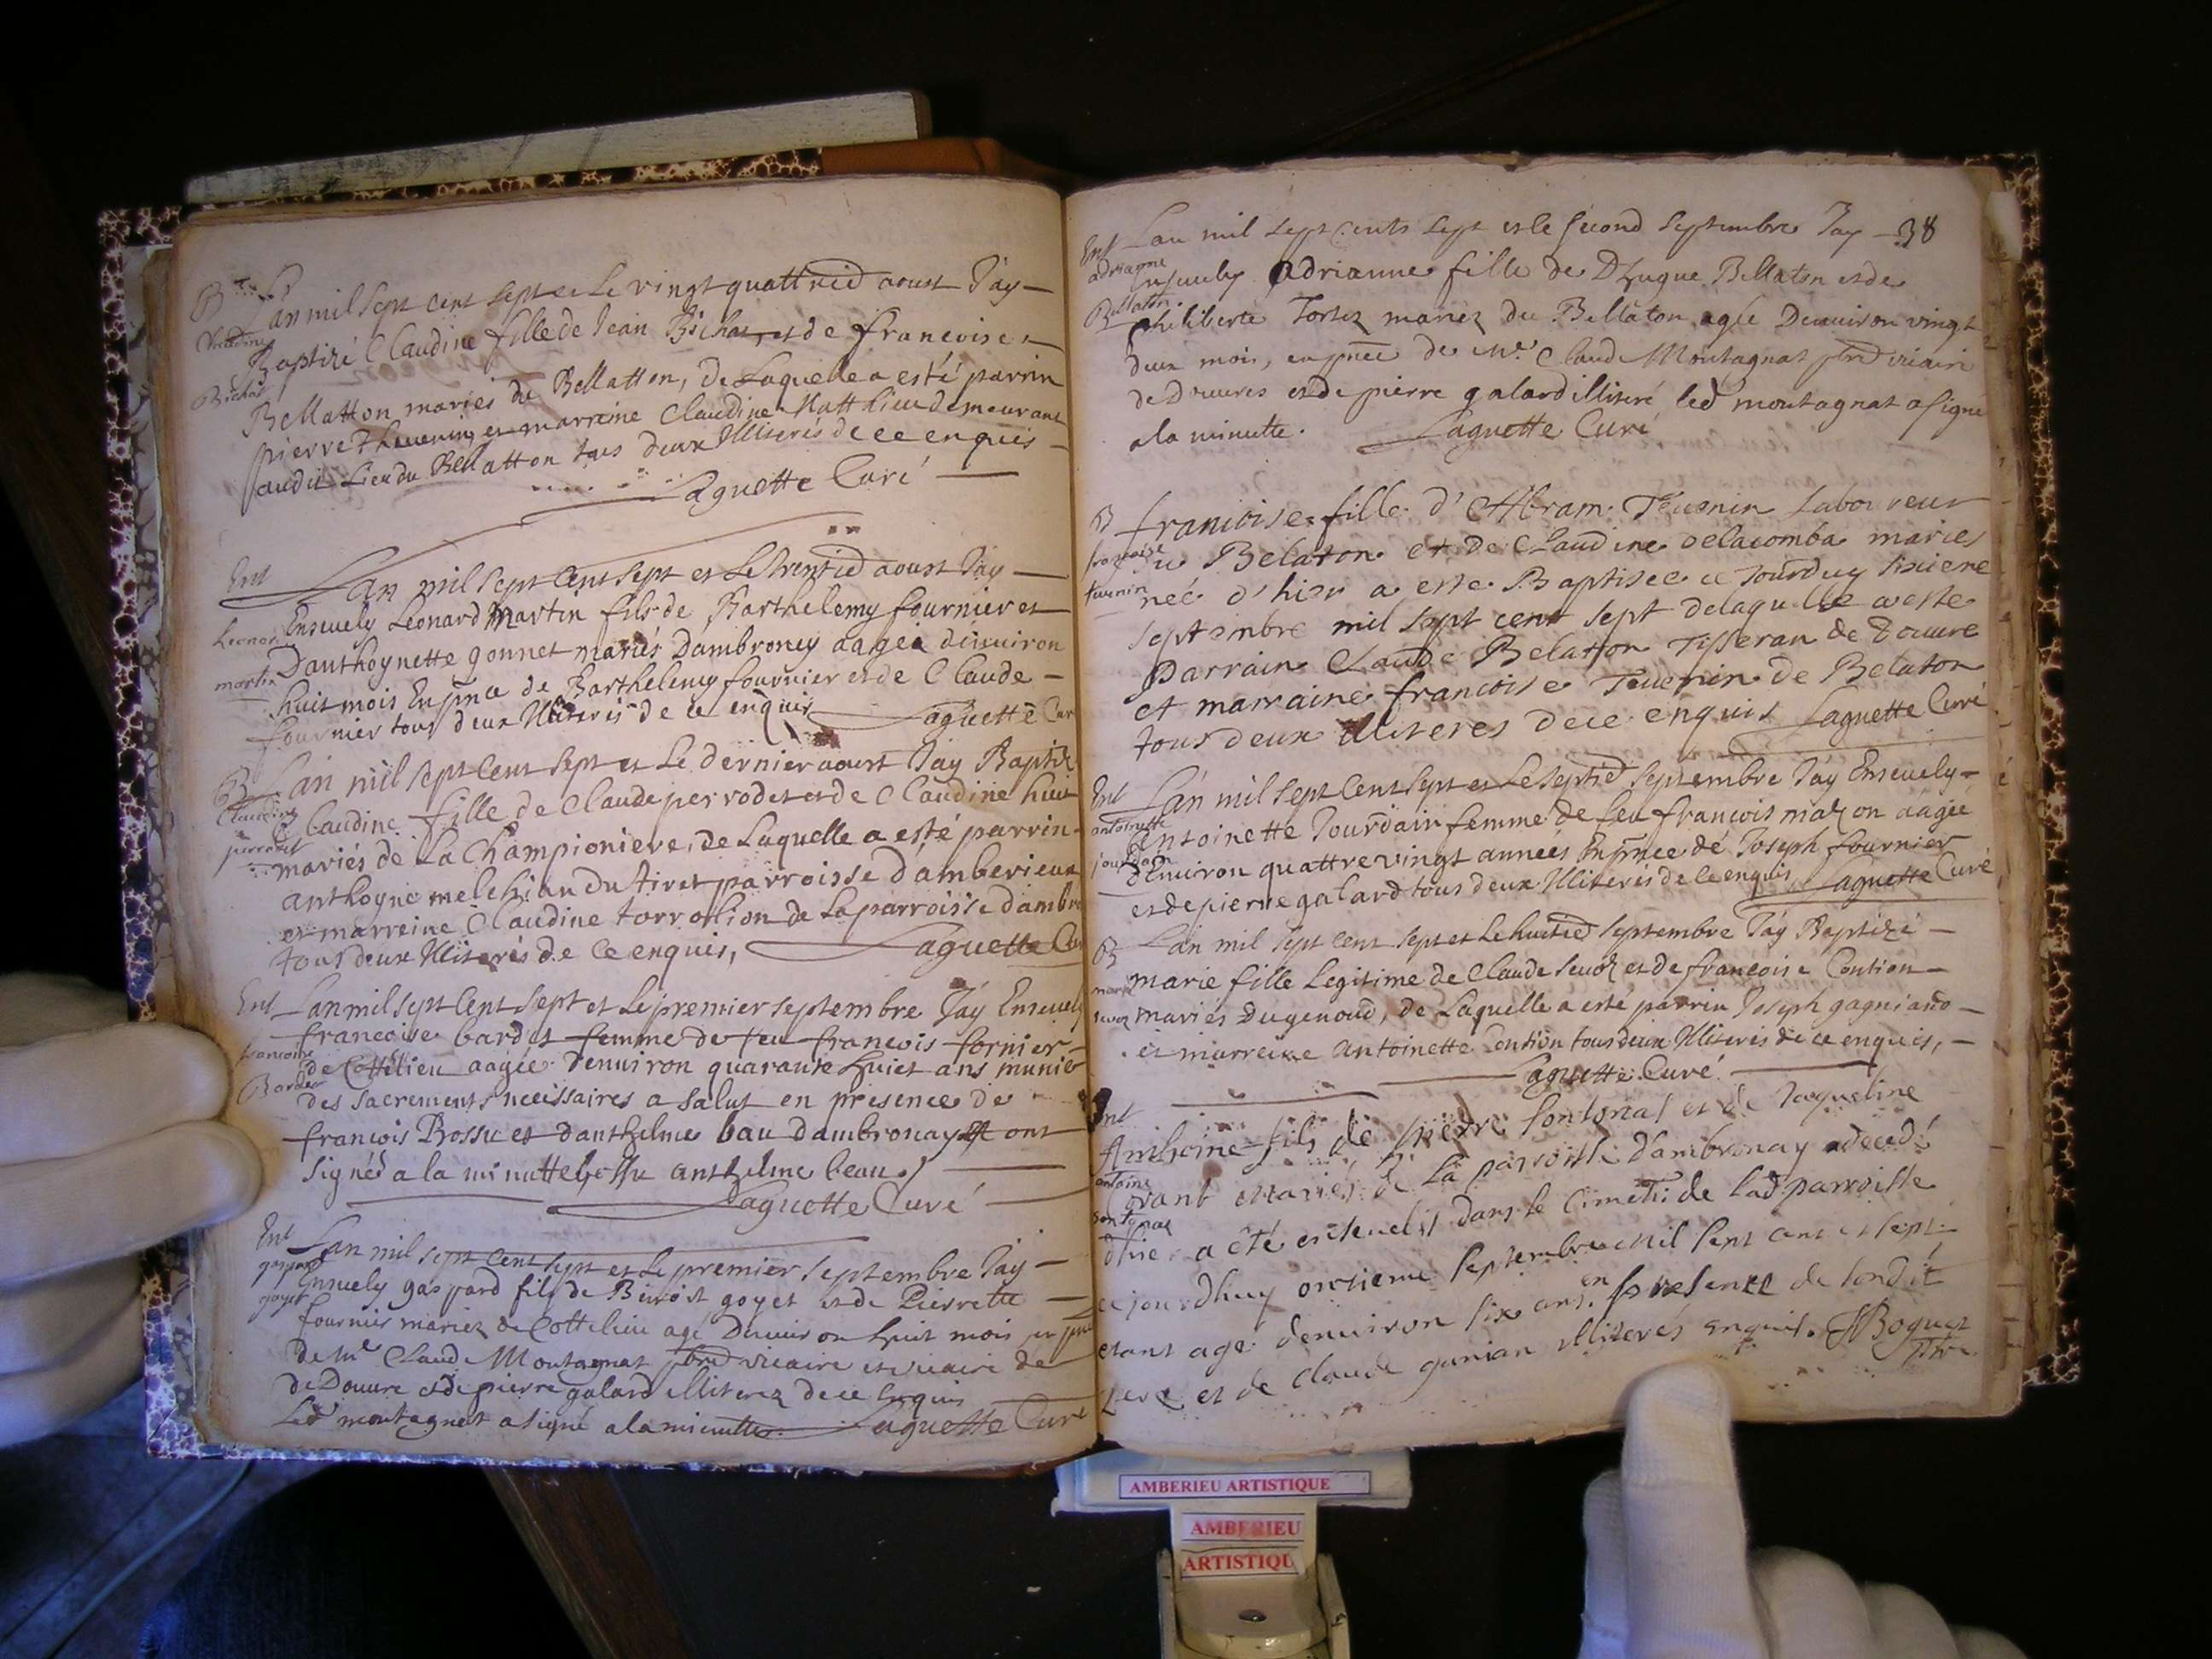 B
Claudine
Bichat
Lan mil sept cent sept et Le vingt quattried aoust Jáy
Baptizé Claudine fille de Jean Bichat et de francoise
BeMatton mariés du Bellatton, de Laquelle a esté parrin
pierre Thevenin et marreine Claudine Matthieu demeurant
audit Lieu du Bellatton tous deux Illiterés de ce enquis
Laguette Curé
Ent
Leonard
martin
Lan mil sept Cent sept et Le trentied aoust Jáy
Enseuely Leonard Martin fils de Barthelemy fournier et
Danthoynette gonnet mariés Dambroney aagé denuiron
huit mois En pñce de Barthelemy fournier et de Claude
fournier tous deux Illiterés de ce enquis Laguette Cur
B
Claudine
perrodet
Lan mil sept Cent sept et Le dernier aoust Jáy Baptizé
Claudine fille de Claude perrodet et de Claudine huit
mariés de La Championiere, de Laquelle a esté parrin
anthoyne melchian du tiret parroisse d'amberieux
et marreine Claudine torrollion de La parroisse dambro
tous deux Illiterés de Ce enquis, Laguette Cur
Ent
francoise
Bardet
Lan mil sept Cent sept et Le premier septembre Jáy Enseuely
francoise bardet femme de feu francois fornier
de Cottelieu aagée denuiron quarante huict ans munie
des sacrements necessaires a salut en presence de
francois Bossu et danthelme bau dambronay et ont
signéd a la minutte bossu anthelme beau
Laguette Curé
Ent
gaspard
goyet
Lan mil sept Cent sept et Le premier septembre Jáy
Enseuely gaspard fils de Benoist goyet et de Pierrette
fournier mariez de Cottelieu agé Denuiron huit mois en pñce
de Mre Claude Montagnat pbre vicaire et vicaire de
de Douure et de pierre galard illiterez de ce Enquis
Led montagnat a signé a la minutte Laguette Curé
38
Ent
adrianne
Bellaton
Lan mil sept cents sept et le second septembre Jay
Enseuely adrianne fille de D hugue Bellaton et de
philiberte Tortez mariez du Bellaton agée Denuiron vingt
deux mois, en pñce de Mre Claude Montagnat pbre vicaire
de Douures et de pierre galard illiteré led montagnat a signé
a la minutte. Laguette Curé
B
francoise
teuenin
francoise fille d'Abram Teuenin Laboureur
du Belaton et de Claudine delacomba mariés
née d'hier a esté Baptisee ce Jourduy sixiene
septembre mil sept cent sept de laquelle a esté
parrain Claude Belatton Tisseran de Douure
et marraine francoise Teuenin de Belaton
tous deux Illiteres de ce enquis Laguette Curé
Ent
antoinette
jourdain
Lan mil sept Cent sept et Le septied septembre Jáy Enseuely
Antoinette Jourdain femme de feu francois mazon aagée
denuiron quattrevingt années En pñce de Joseph fournier
et de pierre galard tous deux Illiterés de ce enquis Laguette Curé
B
marie
seuoz
Lan mil sept cent sept et Le huitied septembre Jáy Baptizé
marie fille Legitime de Claude seuoz et de francoise Contion
mariés du genoud, de Laquelle a esté parrin Joseph gagniand
et marreine Antoinette Contion tous deux Illiterés de ce enquis,
Laguette Curé
Ent
antoine
fontonat
Anthoine fils de Pierre fontonat et de Jaqueline
Corant mariés de La parroisse d'ambronay decedé
d'hier a été enseuelit dans le Cimeti: de lad parroisse
ce jourdhuy onzieme septembre Mil sept cent et sept
etant agé denuiron six ans. en presence de sondit
pere et de Claude gunian illiterés enquis. Boguet
ptre
AMBERIEU ARTISTIQUE
AMBERIEU
ARTISTIQU